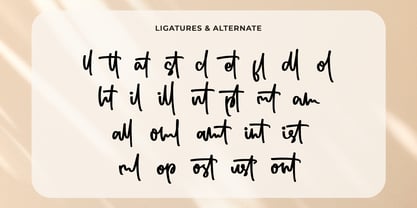 LIGATURES & ALTERNATE
ll tt at st cl et fl dl ol
ht il ill nt pt mt am
all oml amt int ist
ml op ost ust ont